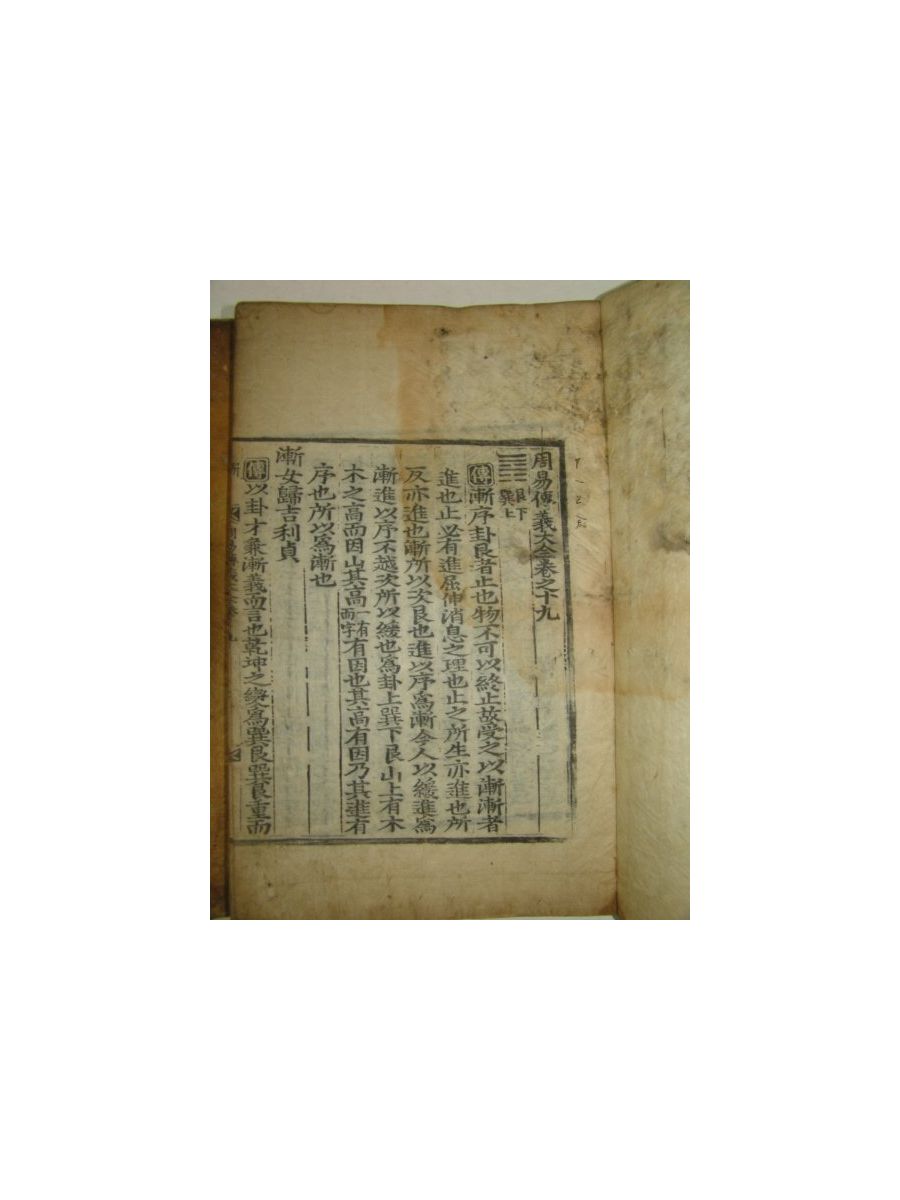 周易傳義大全卷之十九
艮下
巽上
傳漸序卦艮者止也物不可以終止故受之以漸漸者
進也止必有進屈伸消息之理也止之所生亦進也所
反亦進也漸所以次艮也進以序爲漸今人以緩進爲
漸進以序不越次所以緩也爲卦上巽下艮山上有木
木之高而因山其高一有而字有因也其高有因乃其進有
序也所以爲漸也
漸女歸吉利貞
傳以卦才兼漸義而言也乾坤之變爲巽艮巽艮重而